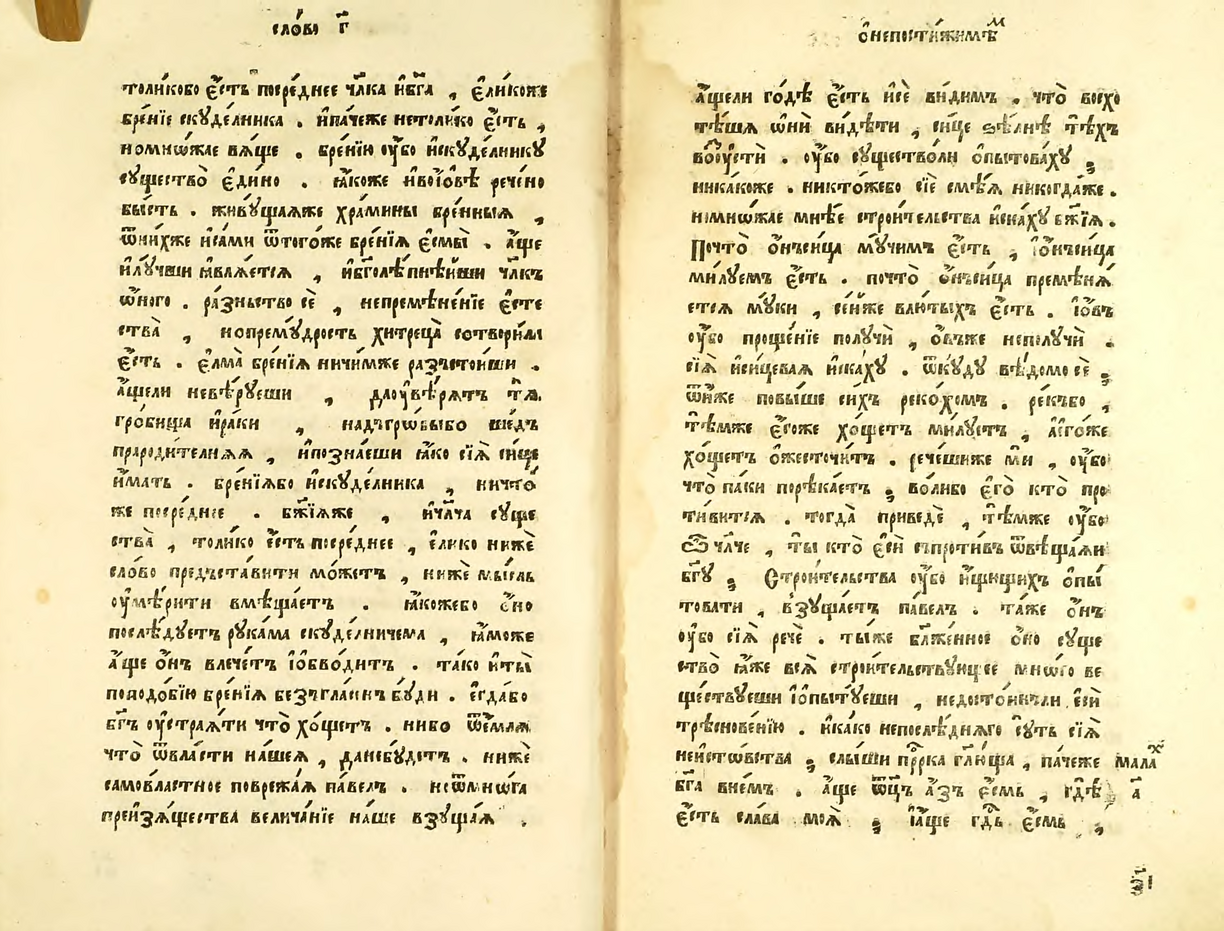 сло́во г҃
толи́кобо є҆́сть посре́днее чл҃ка и҆бг҃а , є҆ли́коже
бре́нїе скуде́лника . и҆па́чеже нетоли́ко є҆́сть ,
номно́жае вя́ще . бре́нїю оу҆́бо и҆скуде́лнику
существо̀ є҆ди́но . ꙗ҆́коже и҆во і҆́овѣ рече́но
бы́сть . живу́щаѧже хра́мины бре́нныѧ ,
ѿни́хже и҆са́ми ѿтого́же бре́нїѧ є҆смы̀ . а҆́ще
и҆лу́чши ꙗ҆влѧ́етсѧ , и҆бг҃олѣ́пнѣйши чл҃къ
ѻ҆́ного . ра́зньство сѐ , непремѣне́нїе є҆сте
ства̀ , нопрему́дрость хитреца̀ сотвори́ла
є҆́сть . є҆лма̀ бре́нїѧ ничи́мже разъстои́ши .
а҆́щели невѣ́руеши , даоу҆вѣ́рѧтъ тѧ̀
гро́бища и҆ра́ки , надъгро́быбо ше́дъ
прароди́телнѧѧ , и҆позна́еши ꙗ҆́ко сїѧ̀ си́це
и҆́мать . бре́нїѧбо и҆скуде́лника , ничто́
же посре́днее . бж҃їѧже , и҆чл҃ча суще
ства̀ , толи́ко є҆́сть посре́днее , є҆ли́ко нижѐ
сло́во предъста́вити мо́жетъ , нижѐ мы́сль
оу҆мѣ́рити вмѣща́етъ . ꙗ҆́кожебо ѻ҆́но
послѣ́дуетъ рука́ма скуде́лничема , ꙗ҆́може
а҆́ще ѻ҆́нъ влече́тъ і҆ѡ҆бво́дитъ . та́ко и҆ты̀
поподо́бїю бре́нїѧ безъгла́сенъ бу́ди . є҆гда́бо
бг҃ъ оу҆стра́ѧти что̀ хо́щетъ . нибо ѿе́млѧ
что̀ ѿвла́сти на́шеѧ , данебу́детъ . нижѐ
самовла́стное повре́жаѧ па́велъ . неѿмно́га
преизѧ́щества велича́нїе на́ше взуща́ѧ .
ѻ҆непости́жимѣм
а҆́щели го́дѣ є҆́сть и҆сѐ ви́димъ . что̀ восхо
тѣ́шѧ ѻ҆нѝ ви́дѣти , си́це ѕѣ́лнѣ тѣ́хъ
воѹстѝ . оу҆́бо существо́ли ѻ҆пытова́ху ;
ника́коже . никто́жебо сїѐ смѣ́ѧ никогда́же .
номно́жае мнѣ́е строи́тельства и҆ска́ху бж҃їѧ .
Почто̀ ѻ҆́нъсица му́чимъ є҆́сть , і҆ѻ҆́нъсица
ми́луемъ є҆́сть . почто̀ ѻ҆́нъсица премѣнѧ́
етсѧ му́ки , се́йже влю́тыхъ є҆́сть . і҆́овъ
оу҆́бо проше́нїе получѝ , ѻ҆́въже неполучѝ .
сїѧ̀ и҆сицева́ѧ и҆ска́ху . ѿку́ду вѣ́домо сѐ ;
ѿни́же повы́ше си́хъ реко́хомъ . ре́къбо ,
тѣ́мже є҆го́же хо́щетъ ми́луетъ , а҆є҆го́же
хо́щетъ ѡ҆жесточи́тъ . рече́шиже мѝ , оу҆́бо
что̀ па́ки порѣка́етъ ; во́либо є҆го̀ кто̀ про
ти́витсѧ . тогда̀ приведѐ , тѣ́мже оу҆́бо
Ѽ чл҃че , ты̀ кто̀ є҆сѝ съпроти́въ ѿвѣща́ѧи
бг҃у ; Строи́тельства оу҆́бо и҆́щущихъ ѻ҆пы
това́ти , взуща́етъ па́велъ . та́же ѻ҆́нъ
оу҆́бо сїѧ̀ речѐ . ты́же блаже́нное ѻ҆́но суще
ство̀ ꙗ҆́же всѧ̀ строи́тельствующее мно́го ве
ще́ствуеши і҆ѻ҆пыту́еши , недосто́инъли є҆сѝ
трѣсновѐнїю . и҆ка́ко непослѣ́днѧго су́ть сїѧ̀
неи́стовства ; слы́ши прⷪ҇рка гл҃юща , па́чеже мала́х
бг҃а вне́мъ . а҆́ще ѻ҆ц҃ъ а҆́зъ є҆́смь , гдѣ̀ а҃
є҆́сть сла́ва моѧ̀ ; і҆а҆́ще гдⷭ҇ь є҆́смь ,